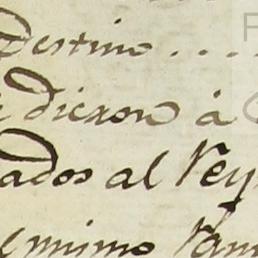 Destino ....
dieron á
ados al Rey
mismo